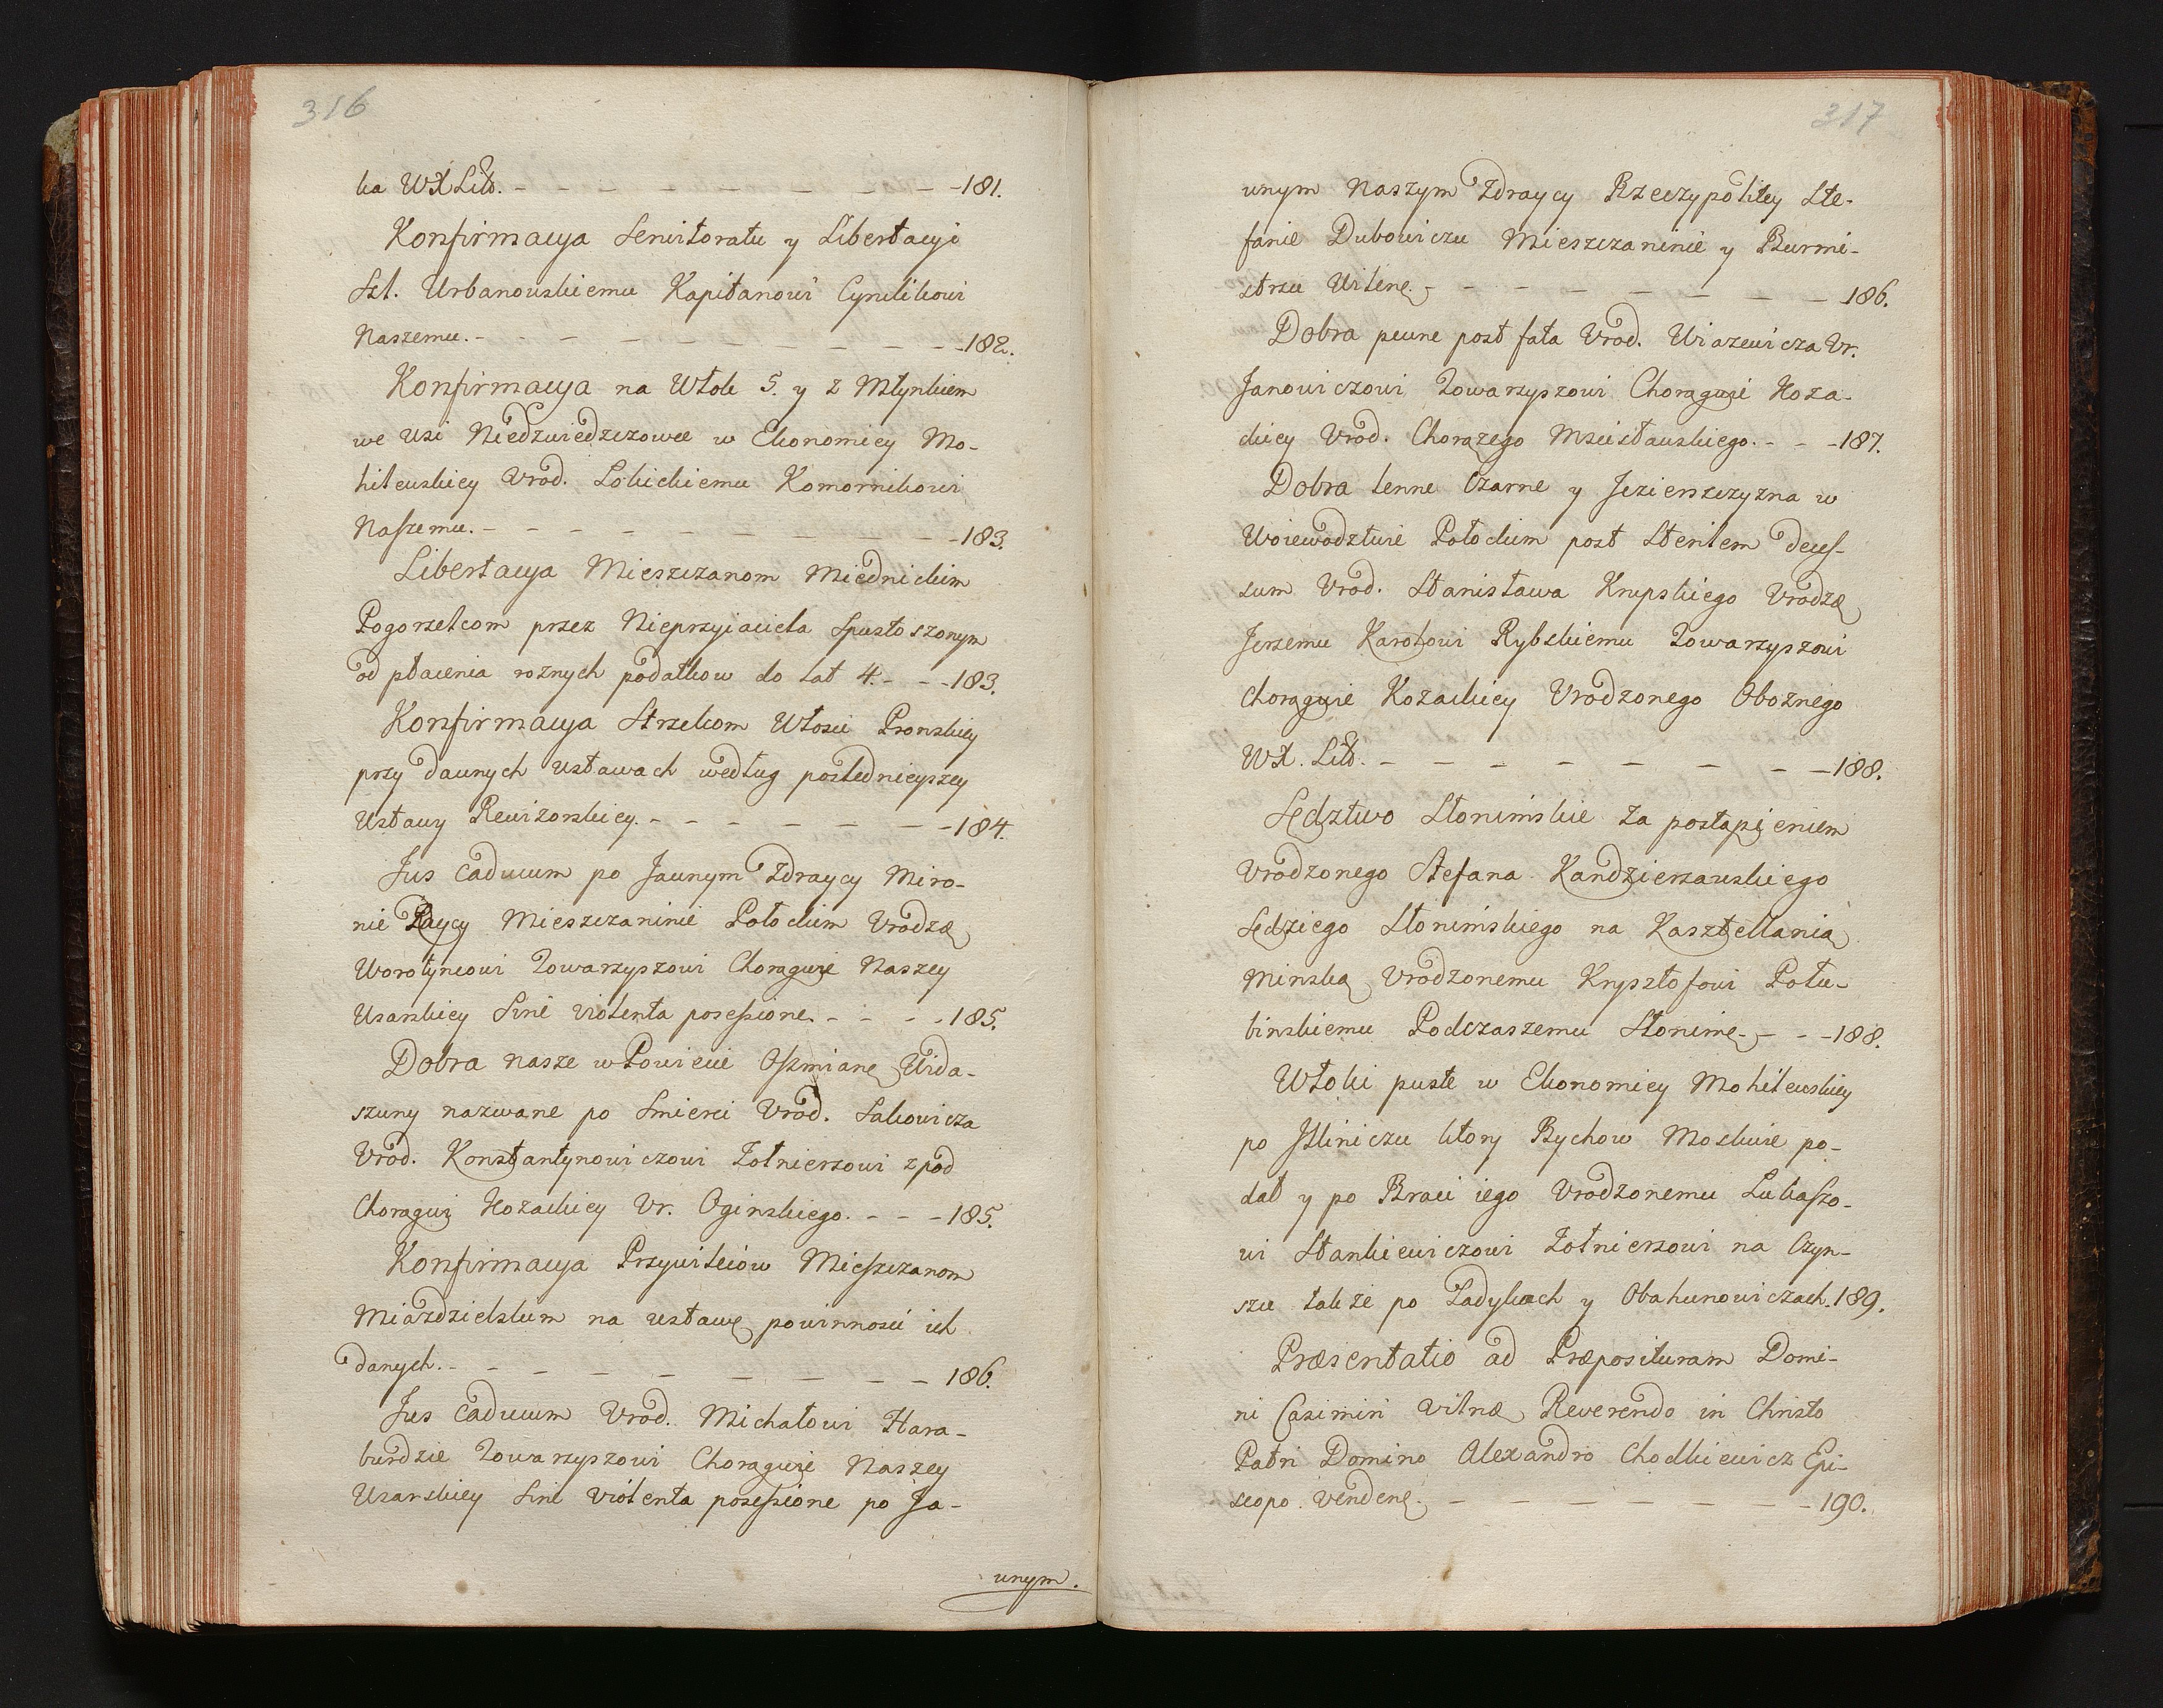 316
ka WX Litt. - - - - - - - - - 181.
Konfirmacya Serwitoratu y Libertacyi
Szl. Urbanowskiemu Kapitanowi Cyrulikowi
Naszemu. - - - - - - - - - 182.
Konfirmacya na Włok 5. y z Młynkiem
we Wsi Niedzwiedzszowce w Ekonomiey Mo-
hilewskiey Urod. Lokickiemu Komornikowi
Naszemu. - - - - - - - - - 183.
Libertacya Mieszczanom Miednickim
Pogorzelcom przez Nieprzyiaciela Spustoszonym
od płacenia roznych podatkow do lat 4. - - - 183.
Konfirmacya Strzelcom Włości Pronskiey
przy dawnych ustawach według poslednieyszey
Ustawy Rewizorskiey. - - - - - - - 184.
Jus Caducum po Jawnym Zdraycy Miro-
nie Mieszczaninie Połockim Urodzæ
Worotyncowi Towarzyszowi Chorągwie Naszey
Usarskiey Sine violenta possessione. - - - - 185.
Dobra nasze w Powiecie Oszmianę Wida-
szuny nazwane po Smierci Urod. Sakowicza
Urod. Konstantynowiczowi Zołnierzowi z pod
Chorągwi Kozackiey Ur. Oginskiego. - - - 185.
Konfirmacya Przywileiow Mieszczanom
Miadzielskim na ustawę powinności ich
danych. - - - - - - - - - 186.
Jus Caducum Urod. Michałowi Hara-
burdzie Towarzyszowi Chorągwie Naszey
Usarskiey Sine violenta possessione po Ja-
wnym.
317
wnym Naszym Zdraycy Rzeczypolitey Ste-
fanie Dubowiczu Mieszczaninie y Burmi-
strzu Wilenę. - - - - - - - - 186.
Dobra pewne post fata Urod. Wiazewicza Ur.
Janowiczowi Towarzyszowi Chorągwie Koza-
ckiey Urod. Chorązego Mscisławskiego. - - - 187.
Dobra lenne Czarne y Jezierszczyzna w
Woiewodztwie Połockim post sterilem deces-
sum Urod. Stanisława Krupskiego Urodzæ
Jerzemu Karolowi Rybskiemu Towarzyszowi
Chorągwie Kozackiey Urodzonego Oboznego
WX. Litt. - - - - - - - - - 188.
Sędztwo Słonimskie za postąpieniem
Urodzonego Stefana Kandzierzawskiego
Sędziego Słonimskiego na Kasztellanią
Minską Urodzonemu Krysztofowi Połu-
binskiemu Podczaszemu Słonimę. - - - 188.
Włoki puste w Ekonomiey Mohilewskiey
po Iliniczu ktory Bychow Moskwie po-
dał y po Braci iego Urodzonemu Lukaszo-
wi Stankiewiczowi Zołnierzowi na Czyn-
szu także po Ladykach y Obahunowiczach. 189.
Præsentatio ad Præposituram Domi-
ni Casimiri Vilnæ Reverendo in Christo
Patri Domino Alexandro Chodkiewicz Epi-
scopo Vendenę. - - - - - - - - 190.